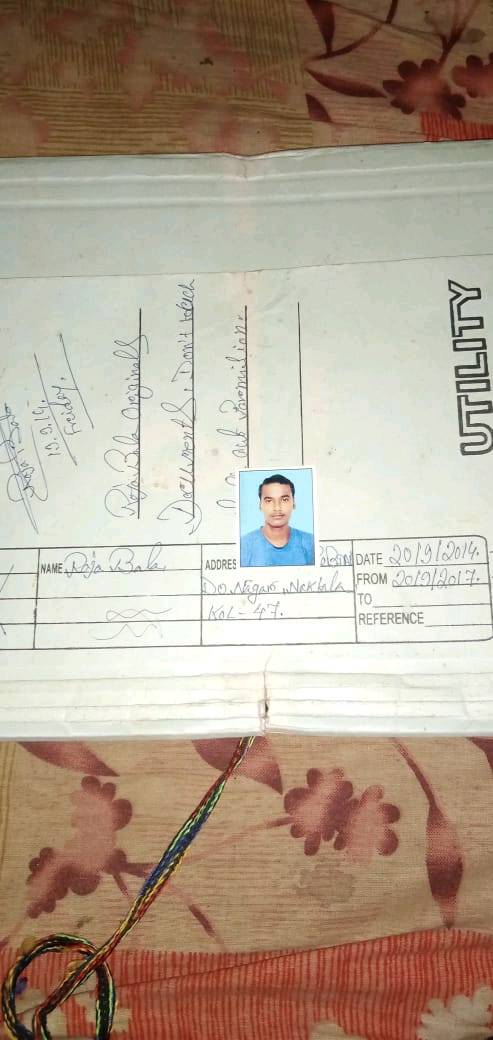 UTILITY
Raja Bala Originals
Documents. Don't touch
out Parmilian.
Raja Bala
19.9.14.
Freidey.
NAME Raja Bala
ADDRES
Do Nagar, Naktala
KOL - 47.
DATE 20/9/2014.
FROM 20/9/2017.
TO
REFERENCE